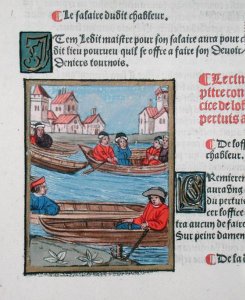 ¶ Le salaire dudit chableur.
ITem Ledit maister pour son salaire aura pour c
dit lieu pourueu quil se offre a faire son Deuoir
Deniers tournois.
¶ Le cin
pitre con
cice de lof
pertuis a
¶ De loff
chableur.
PRemierem
du pertui
ces est tenu
tra aucun de faire
Sur peine damen